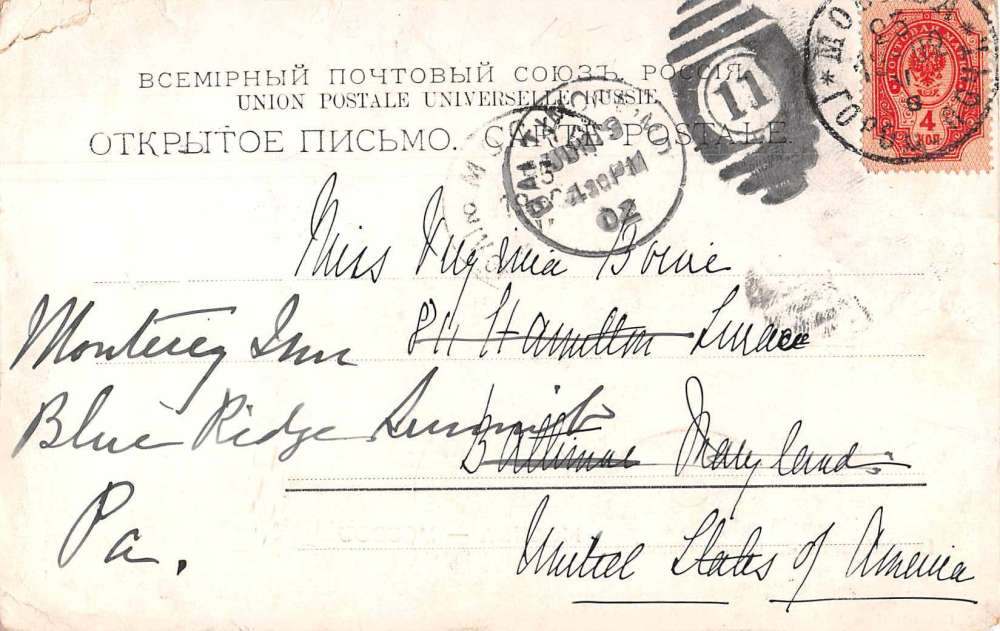 ВСЕМІРНЫЙ ПОЧТОВЫЙ СОЮЗЪ. РОССІЯ.
UNION POSTALE UNIVERSELLE. RUSSIE.
ОТКРЫТОЕ ПИСЬМО. CARTE POSTALE.
МОСКВА
ПОЧТОВАЯ МАРКА
4
КОП.
11
4-30PM
02
Miss Virginia Bowie
811 Hamilton Terrace
Baltimore Maryland
United States of America
Monterey Inn
Blue Ridge Summit
Pa.